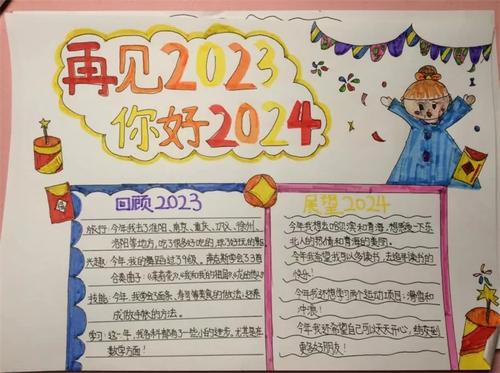 再见2023
你好2024
回顾2023
旅行:今年我去了洛阳、南京、重庆、武汉、徐州、
洛阳等地方,吃了很多好吃的,
兴趣:今年,我的舞蹈过了9级,
合奏曲子:《茉莉花》、《我和我的祖国》
技能:今年,我学会了面条、寿司等美食的做法;还养
成做手账的方法。
学习:这一年,我各科都有了一些小的进步,尤其是在
数学方面!
展望2024
今年我想去哈尔滨和青海,想感受一下东
北人的热情和青海的美丽。
今年我希望我可以多读书,去追寻读书的
快乐!
今年我还想学习两个运动项目:滑雪和
冲浪!
今年我还希望自己可以天天开心,结交到
更多好朋友!